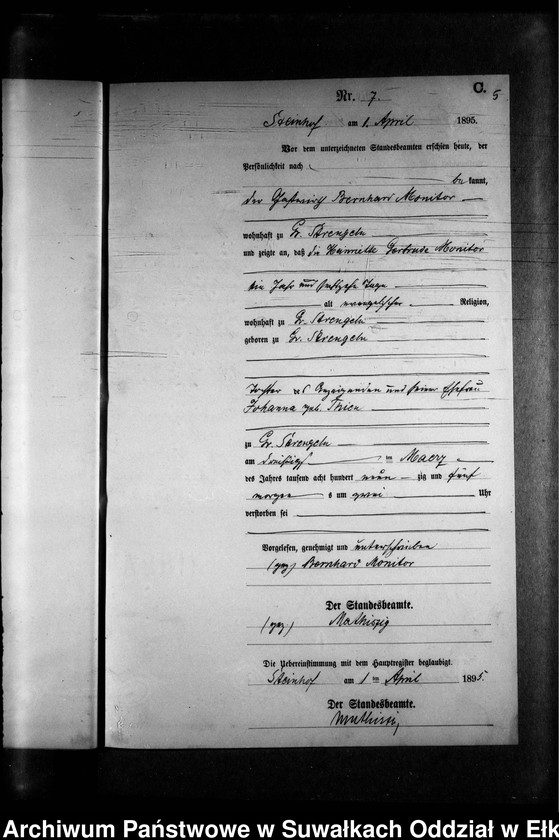 C. 5
Nr. 7.
Steinhof am 1. April 1895.
Vor dem unterzeichneten Standesbeamten erschien heute, der
Persönlichkeit nach
bekannt,
der Gastwirth Bernhard Monitor
wohnhaft zu Gr. Strengeln
und zeigte an, daß die Henriette Gertrude Monitor
ein Jahr und Tage
alt evangelischer Religion,
wohnhaft zu Gr. Strengeln
geboren zu Gr. Strengeln
Tochter des Anzeigenden und seiner Ehefrau
Johanna geb. Thien
zu Gr. Strengeln
am dreißigsten Maerz
des Jahres tausend acht hundert neunzig und fünf
morgens um zwei Uhr
verstorben sei
Vorgelesen, genehmigt und unterschrieben
(gez) Bernhard Monitor
Der Standesbeamte.
(gez.) Mathiszig
Die Uebereinstimmung mit dem Hauptregister beglaubigt.
Steinhof am 1 ten April 1895.
Der Standesbeamte.
Mathiszig
Archiwum Państwowe w Suwałkach Oddział w Ełk